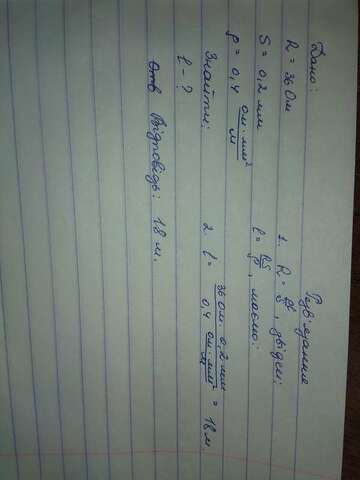 Дано:
R = 36 Ом
S = 0,2 мм
ρ = 0,4 Ом·мм²/м
Знайти:
l - ?
Розв'язання
1. R = ρl/S, звідси:
l = RS/ρ, маємо:
2. l = 36 Ом · 0,2 мм / 0,4 Ом·мм²/м = 18 м.
Отв Відповідь: 18 м.